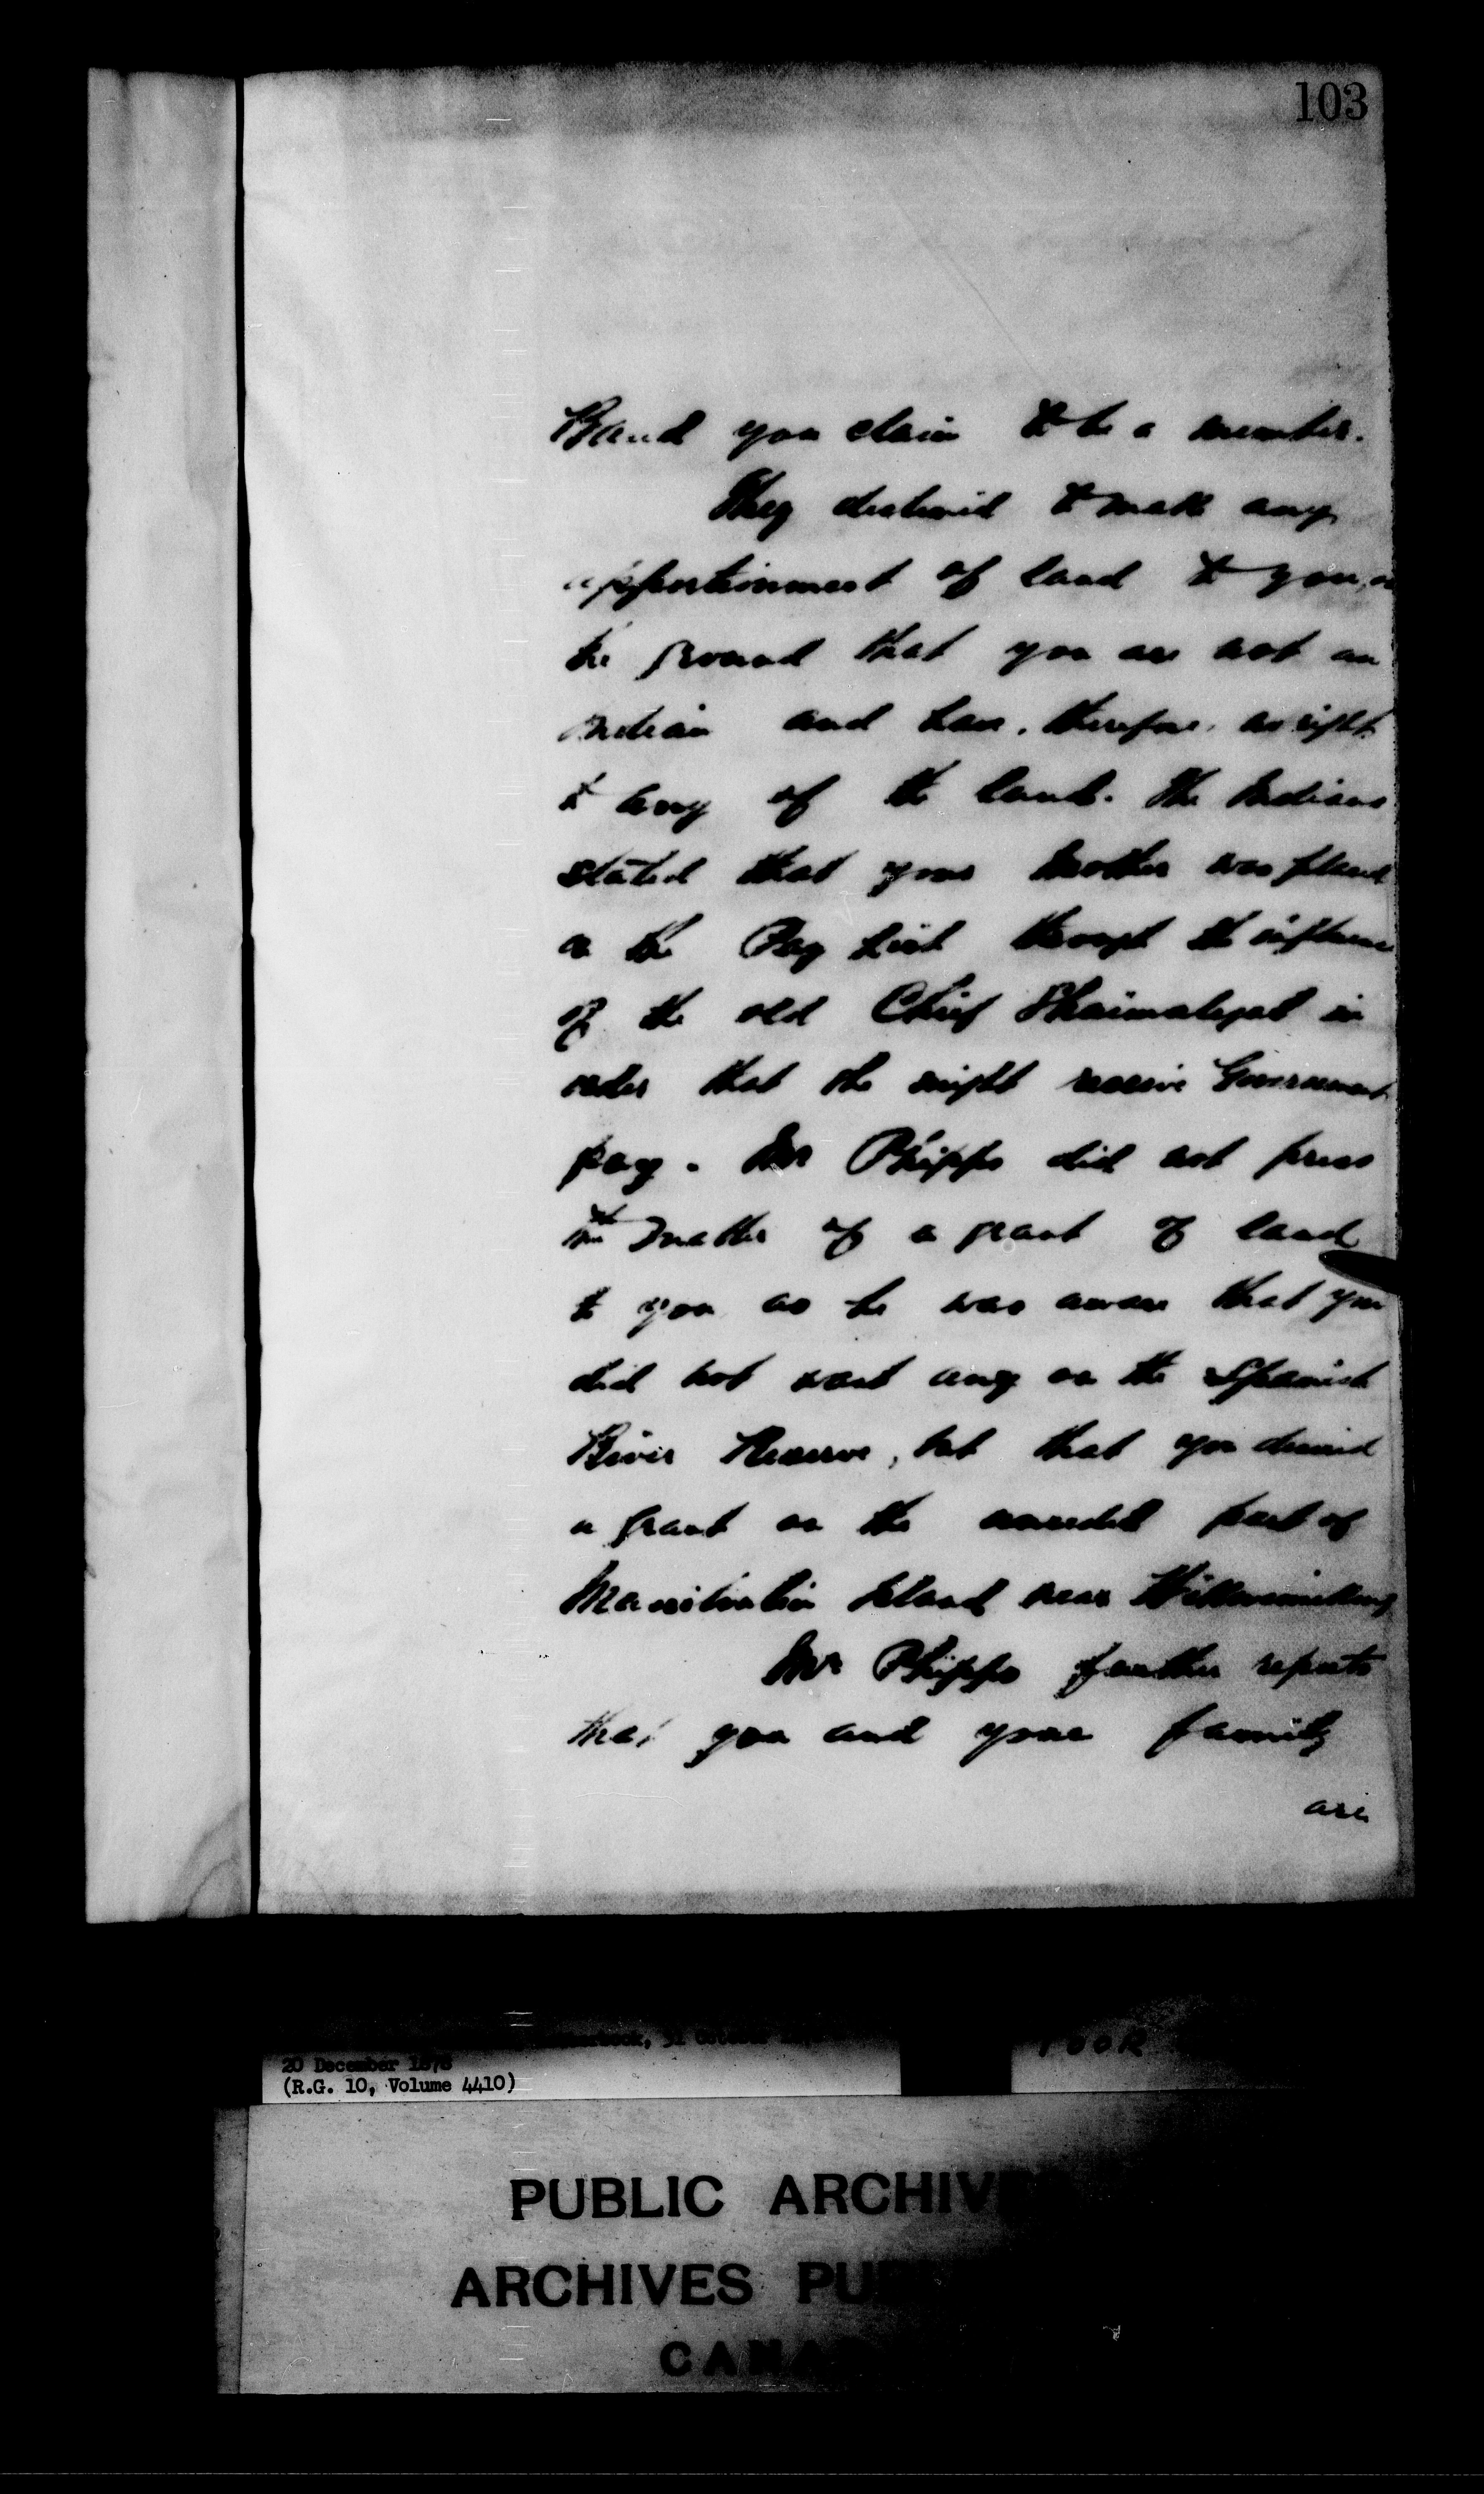 103
Band you claim to be a member.
They declined to make any
apportionment of land to you, on
the ground that you are not an
Indian and have, therefore, no right
to any of the land. The Indians
stated that your mother was placed
on the Pay List through the influence
of the old Chief in
order that she might receive Government
pay. Mr Phipps did not press
the matter of a grant of land
to you as he was aware that you
did not want any on the Spanish
River Reserve, but that you desired
a grant on the unceded part of
Manitoulin Island near
Mr Phipps further reports
that you and your family
are
October
20 December 1878
(R.G. 10, Volume 4410)
POOR
PUBLIC ARCHIVE
ARCHIVES PU
CANA